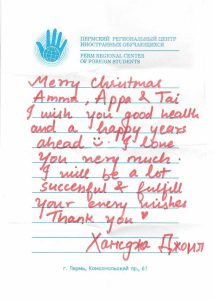 ПЕРМСКИЙ РЕГИОНАЛЬНЫЙ ЦЕНТР
ИНОСТРАННЫХ ОБУЧАЮЩИХСЯ
PERM REGIONAL CENTER
OF FOREIGN STUDENTS
Merry Christmas
Amma, Appa & Tai
I wish you good health
and a happy years
ahead I love
You very much.
I will be a lot
succesful & fulfill
your every wishes
Thank you
Джоил
г. Пермь, Комсомольский пр., 61